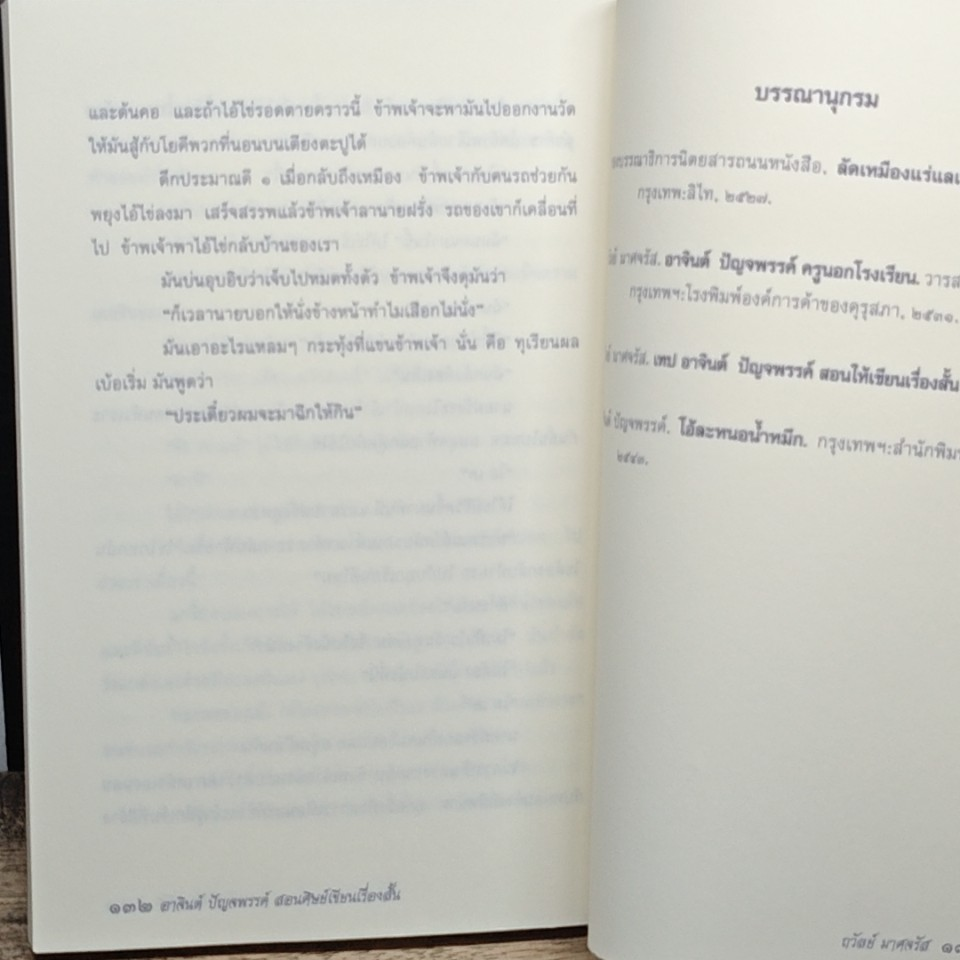 และดันคอ และถ้าไอ้ไข่รอดตายคราวนี้ ข้าพเจ้าจะพามันไปออกงานวัด
ให้มันสู้กับโยคีพวกที่นอนบนเตียงตะปูได้
ดึกประมาณตี ๑ เมื่อกลับถึงเหมือง ข้าพเจ้ากับคนรถช่วยกัน
พยุงไอ้ไข่ลงมา เสร็จสรรพแล้วข้าพเจ้าลานายฝรั่ง รถของเขาก็เคลื่อนที่
ไป ข้าพเจ้าพาไอ้ไข่กลับบ้านของเรา
มันบ่นอุบอิบว่าเจ็บไปหมดทั้งตัว ข้าพเจ้าจึงดุมันว่า
“ก็เวลานายบอกให้นั่งข้างหน้าทำไมเสือกไม่นั่ง”
มันเอาอะไรแหลมๆ กระทุ้งที่แขนข้าพเจ้า นั่น คือ ทุเรียนผล
เบ้อเริ่ม มันพูดว่า
“ประเดี๋ยวผมจะมาฉีกให้กิน”
๑๓๒ อาจินต์ ปัญจพรรค์ สอนศิษย์เขียนเรื่องสั้น
บรรณานุกรม
บรรณาธิการนิตยสารถนนหนังสือ. ลัดเหมืองแร่และ
กรุงเทพ:สีไท, ๒๕๒๗.
มาศจรัส. อาจินต์ ปัญจพรรค์ ครูนอกโรงเรียน. วารส
กรุงเทพฯ:โรงพิมพ์องค์การค้าของคุรุสภา, ๒๕๓๑.
มาศจรัส. เทป อาจินต์ ปัญจพรรค์ สอนให้เขียนเรื่องสั้น
ปัญจพรรค์. โอ้ละหนอน้ำหมึก. กรุงเทพฯ:สำนักพิม
๒๕๔๓.
ถวัลย์ มาศจรัส